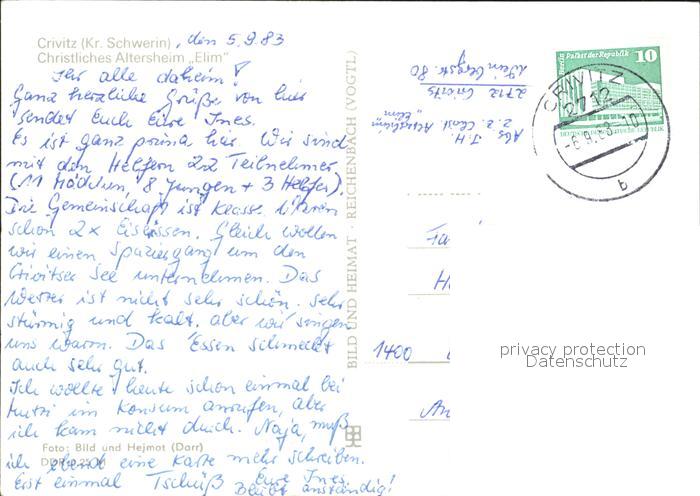 Crivitz (Kr. Schwerin), den 5.9.83
Christliches Altersheim „Elim"
Ihr alle daheim!
Ganz herzliche Grüße von hier
sendet Euch Eure Ines.
Es ist ganz prima hier. Wir sind
mit den Helfern 22 Teilnehmer
(11 Mädchen, 8 Jungen + 3 Helfer).
Die Gemeinschaft ist Klasse. Waren
schon 2x Eisessen. Gleich wollen
wir einen Spaziergang um den
Crivitser See unternehmen. Das
Wetter ist nicht sehr schön. Sehr
stürmig und kalt, aber wir singen
uns warm. Das Essen schmeckt
auch sehr gut.
Ich wollte heute schon einmal bei
im Konsum anrufen, aber
ich kam nicht durch. Naja, muß
ich eine Karte mehr schreiben.
Erst einmal Tschüß Eure Ines.
Bleibt anständig!
Foto: Bild und Heimat (Darr)
BILD UND HEIMAT · REICHENBACH (VOGTL)
Abs. J.H.
z.Z. Chr. Altersheim
„Elim"
2712 Crivitz
Weinbergstr. 80
Palast der Republik
10
CRIVITZ
2712
-6.9.83-10
b
Fa
H
1400
An
privacy protection
Datenschutz